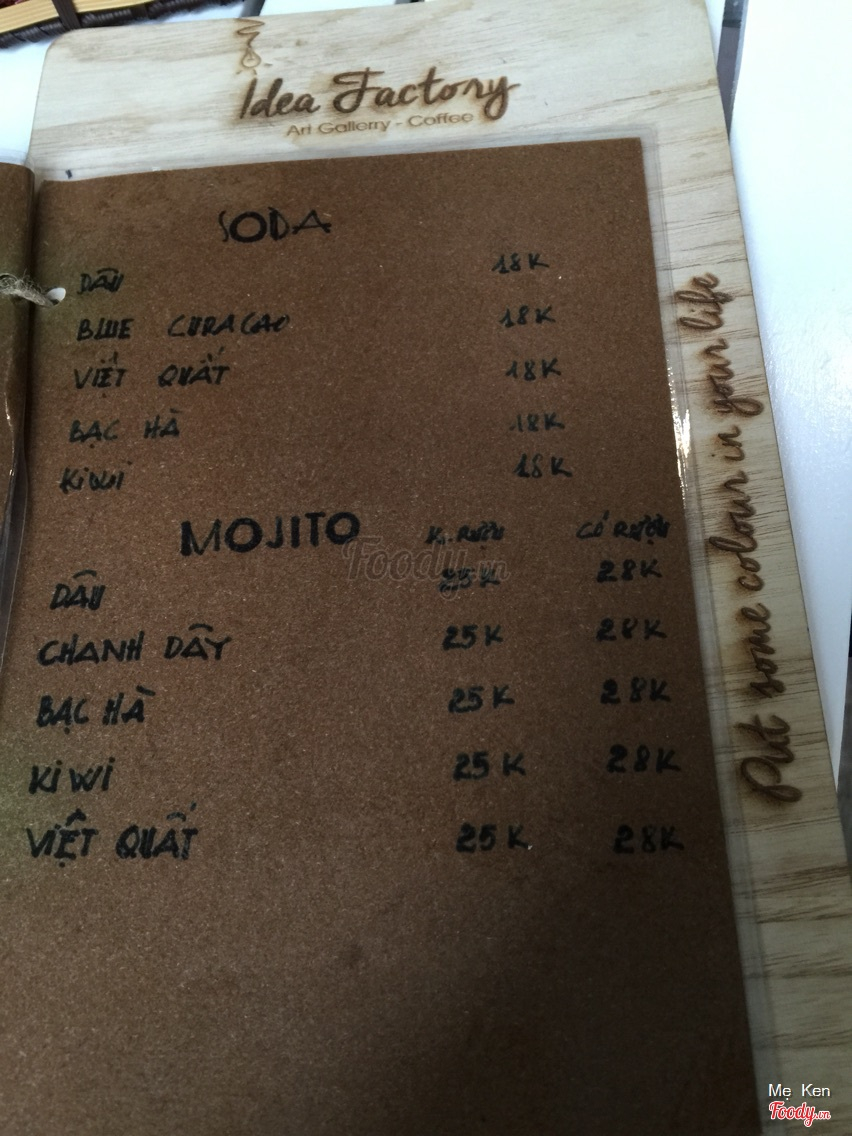 Idea Factory
Art Gallerry - Coffee
SODA
DÂU 18K
BLUE CURAÇAO 18K
VIỆT QUẤT 18K
BẠC HÀ 18K
KiWi 18K
MOJITO K.RƯỢU CÓ RƯỢU
DÂU 25K 28K
CHANH DÂY 25K 28K
BẠC HÀ 25K 28K
KiWi 25K 28K
VIỆT QUẤT 25K 28K
Put some colour in your life
Foody.vn
Mẹ Ken
Foody.vn